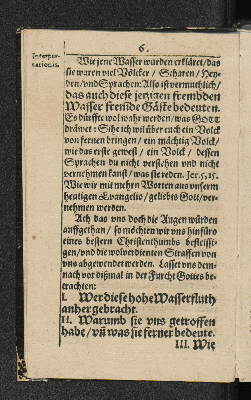 6.
Interpre-
tationis.
Wie jene Wasser wurden erkläret / das
sie waren viel Völcker / Scharen / Hey-
den / und Sprachen: Also ist vermuthlich /
das auch diese jetzigen frembden
Wasser fremde Gäste bedeuten.
Es dürffte wol wahr werden / was GOTT
dräwet: Sihe ich wil über euch ein Volck
von fernen bringen / ein mächtig Volck /
wie das erste gewest / ein Volck / dessen
Sprachen du nicht verstehen und nicht
vernehmen kanst / was sie reden. Jer. 5, 15.
Wie wir mit mehren Worten aus unserm
heutigen Evangelio / geliebts Gott / ver-
nehmen werden.
Ach das uns doch die Augen würden
auffgethan / so möchten wir uns hinfüro
eines bessern Christenthumbs befleissi-
gen / und die wolverdienten Straffen von
uns abgewendet werden. Lasset uns dem-
nach vor dißmal in der Furcht Gottes be-
trachten:
I. Wer diese hohe Wasserfluth
anher gebracht.
II. Warumb sie uns getroffen
habe / uñ was sie ferner bedeute.
III. Wie